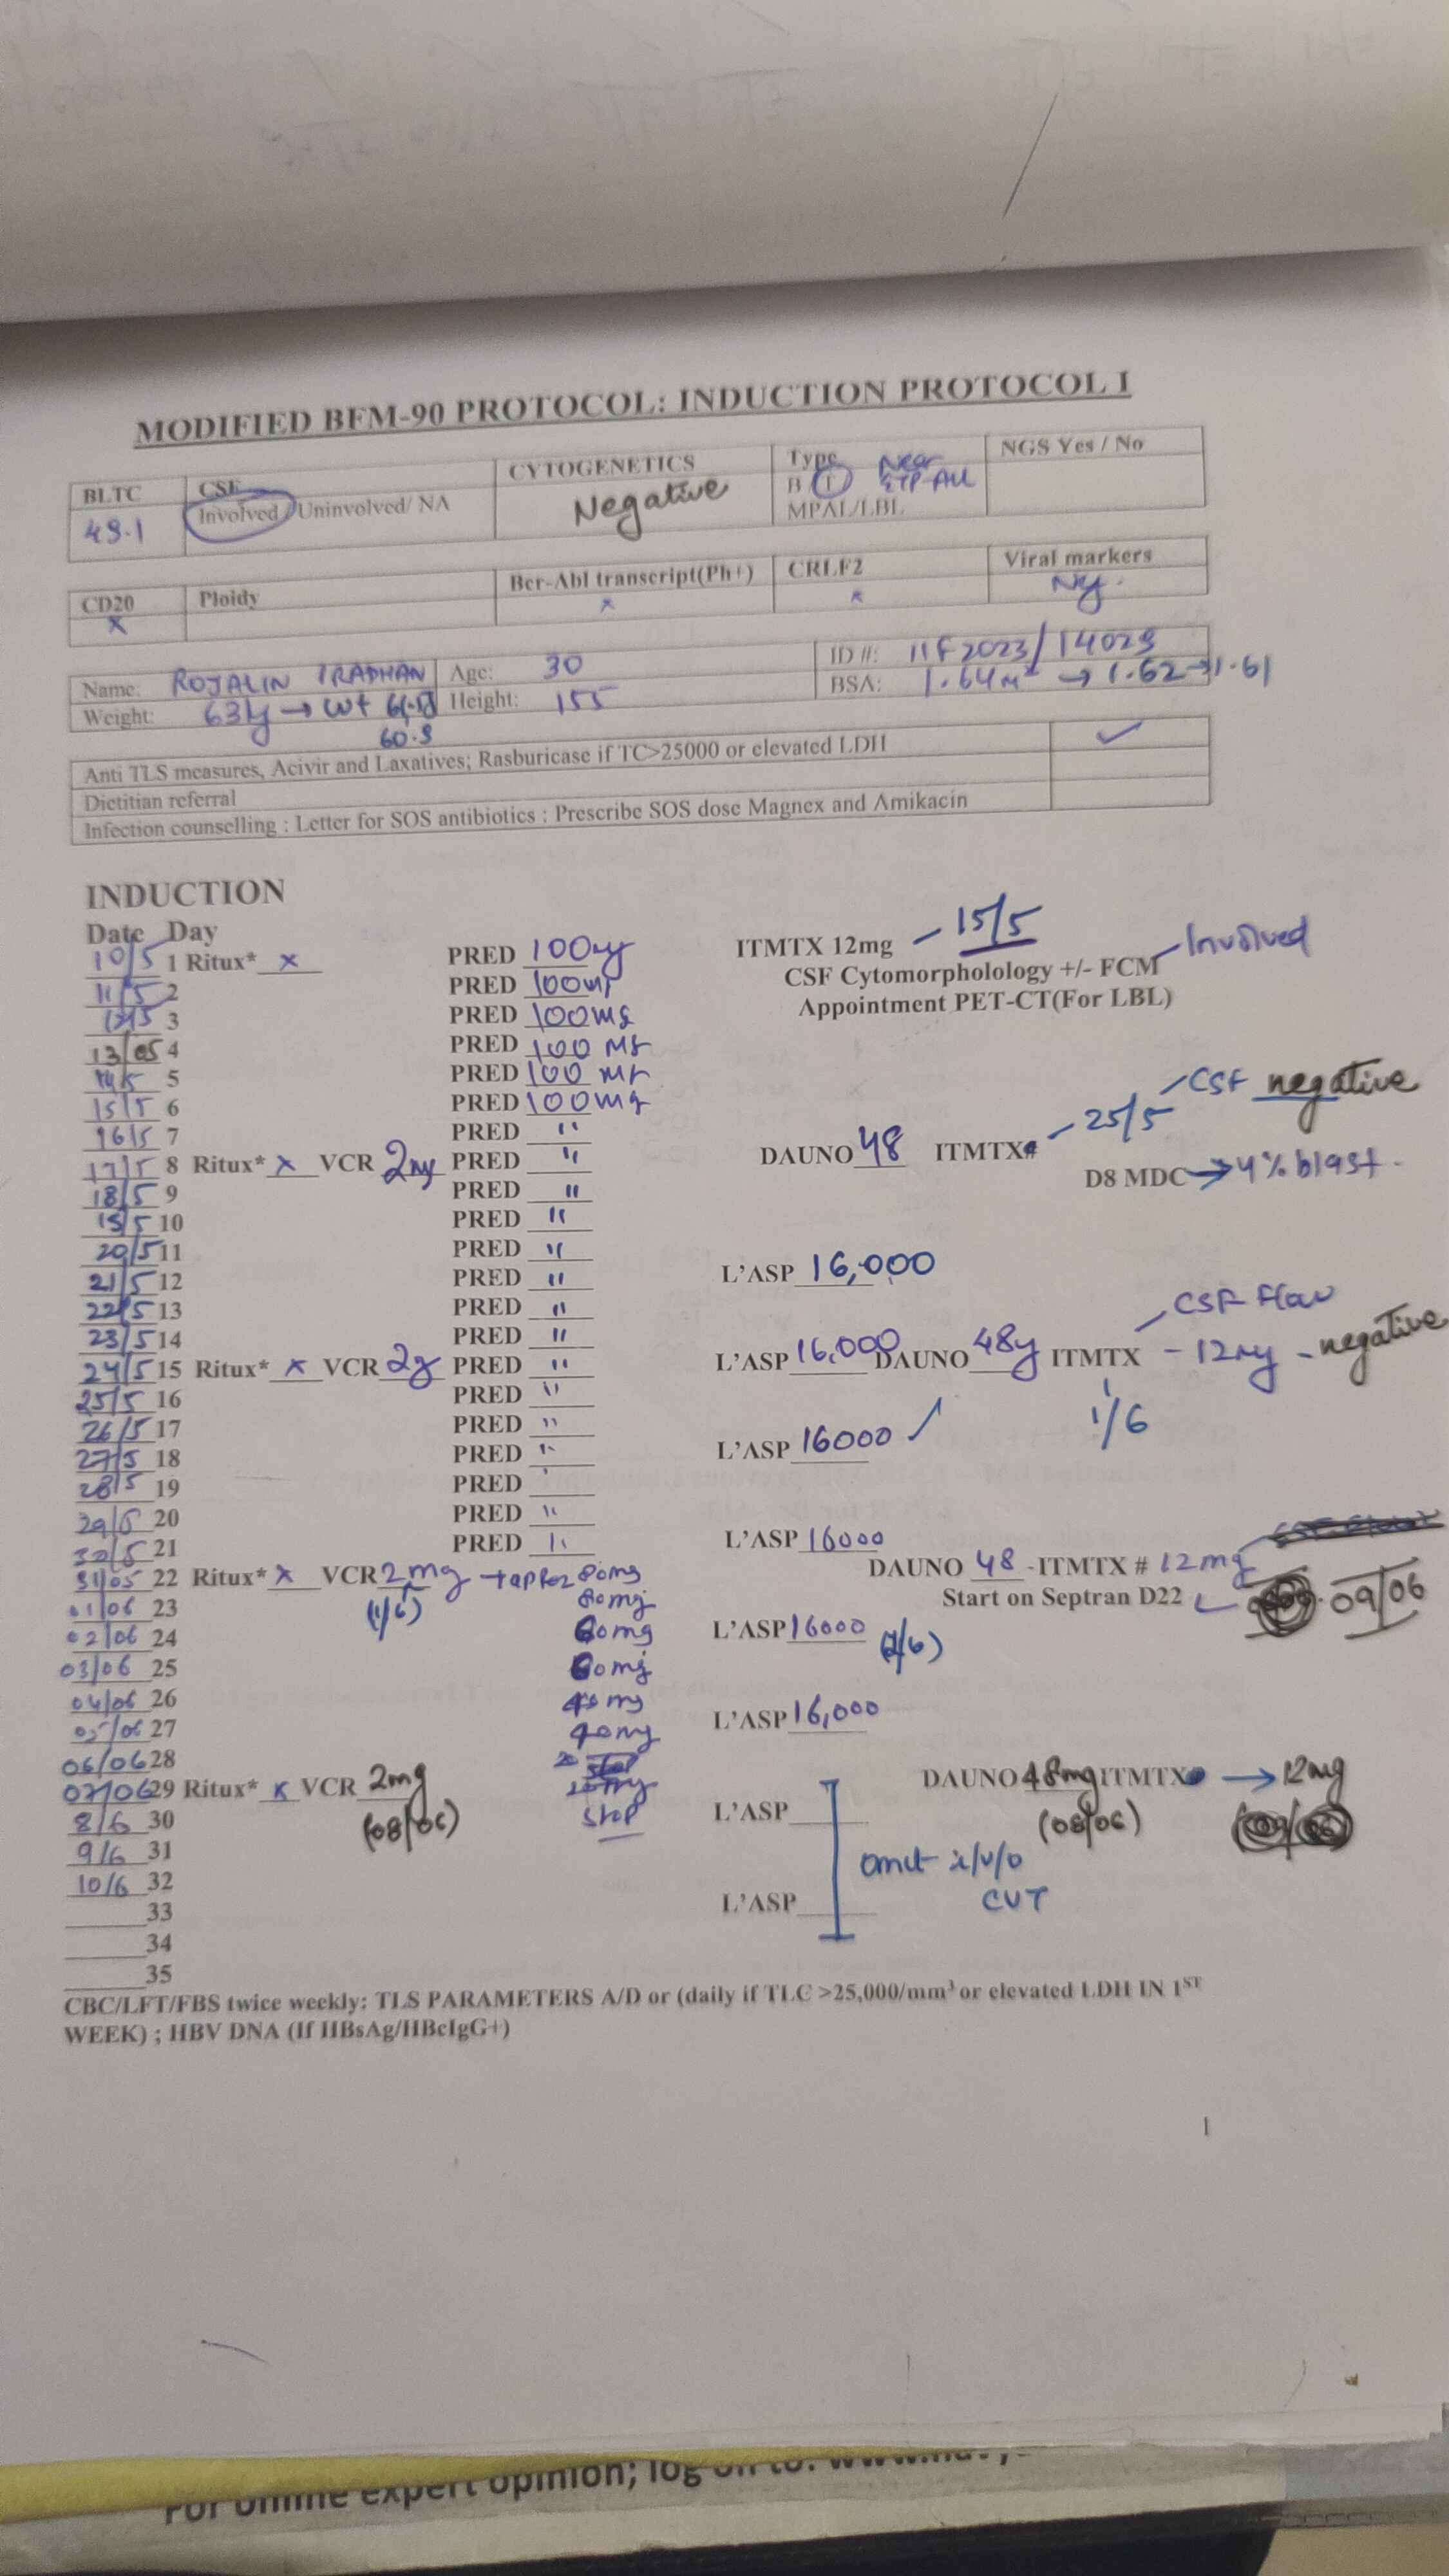 MODIFIED BFM-90 PROTOCOL: INDUCTION PROTOCOL I
BLTC CSF CYTOGENETICS Type NGS Yes / No
49.1 Involved / Uninvolved/ NA Negative B T Near ETP-ALL
MPAL/LBL
CD20 Ploidy Bcr-Abl transcript(Ph+) CRLF2 Viral markers
x x x
Name: ROJALIN PRADHAN Age: 30 ID #:
Weight: Height: 155 BSA: 1.64m² → 1.62 → 1.61
60.9
Anti TLS measures, Acivir and Laxatives; Rasburicase if TC>25000 or elevated LDH ✓
Dietitian referral
Infection counselling : Letter for SOS antibiotics : Prescribe SOS dose Magnex and Amikacin
INDUCTION
Date Day
10/5 1 Ritux* x PRED 100mg ITMTX 12mg – 15/5
CSF Cytomorpholology +/- FCM – Involved
Appointment PET-CT(For LBL)
11/5 2 PRED 100mg
12/5 3 PRED 100mg
13/05 4 PRED 100 mg
14/5 5 PRED 100 mg
15/5 6 PRED 100mg
16/5 7 PRED "
17/5 8 Ritux* x VCR 2mg PRED " DAUNO 48 ITMTX – 25/5 – CSF negative
D8 MDC → 4% blast.
18/5 9 PRED "
19/5 10 PRED "
20/5 11 PRED "
21/5 12 PRED " L'ASP 16,000
22/5 13 PRED "
23/5 14 PRED " CSF Flow
24/5 15 Ritux* x VCR PRED " L'ASP 16,000 DAUNO ITMTX – 12mg – negative
25/5 16 PRED " 1/6
26/5 17 PRED "
27/5 18 PRED " L'ASP 16000 ✓
28/5 19 PRED
29/5 20 PRED "
30/5 21 PRED " L'ASP 16000
31/05 22 Ritux* x VCR 2mg → taper 80mg DAUNO 48 -ITMTX # 12mg
01/06 23 (1/6) 80mg Start on Septran D22 09/06
02/06 24 60mg L'ASP 16000
03/06 25 60mg
04/06 26 40mg
05/06 27 40mg L'ASP 16,000
06/06 28
07/06 29 Ritux* x VCR 2mg DAUNO 48mg ITMTX → 12mg
8/6 30 (08/06) stop L'ASP (08/06)
9/6 31 omit i/v/o
10/6 32 CVT
L'ASP
33
34
35
CBC/LFT/FBS twice weekly: TLS PARAMETERS A/D or (daily if TLC >25,000/mm³ or elevated LDH IN 1ST
WEEK) ; HBV DNA (If HBsAg/HBcIgG+)
1
For online expert opinion; log on to: